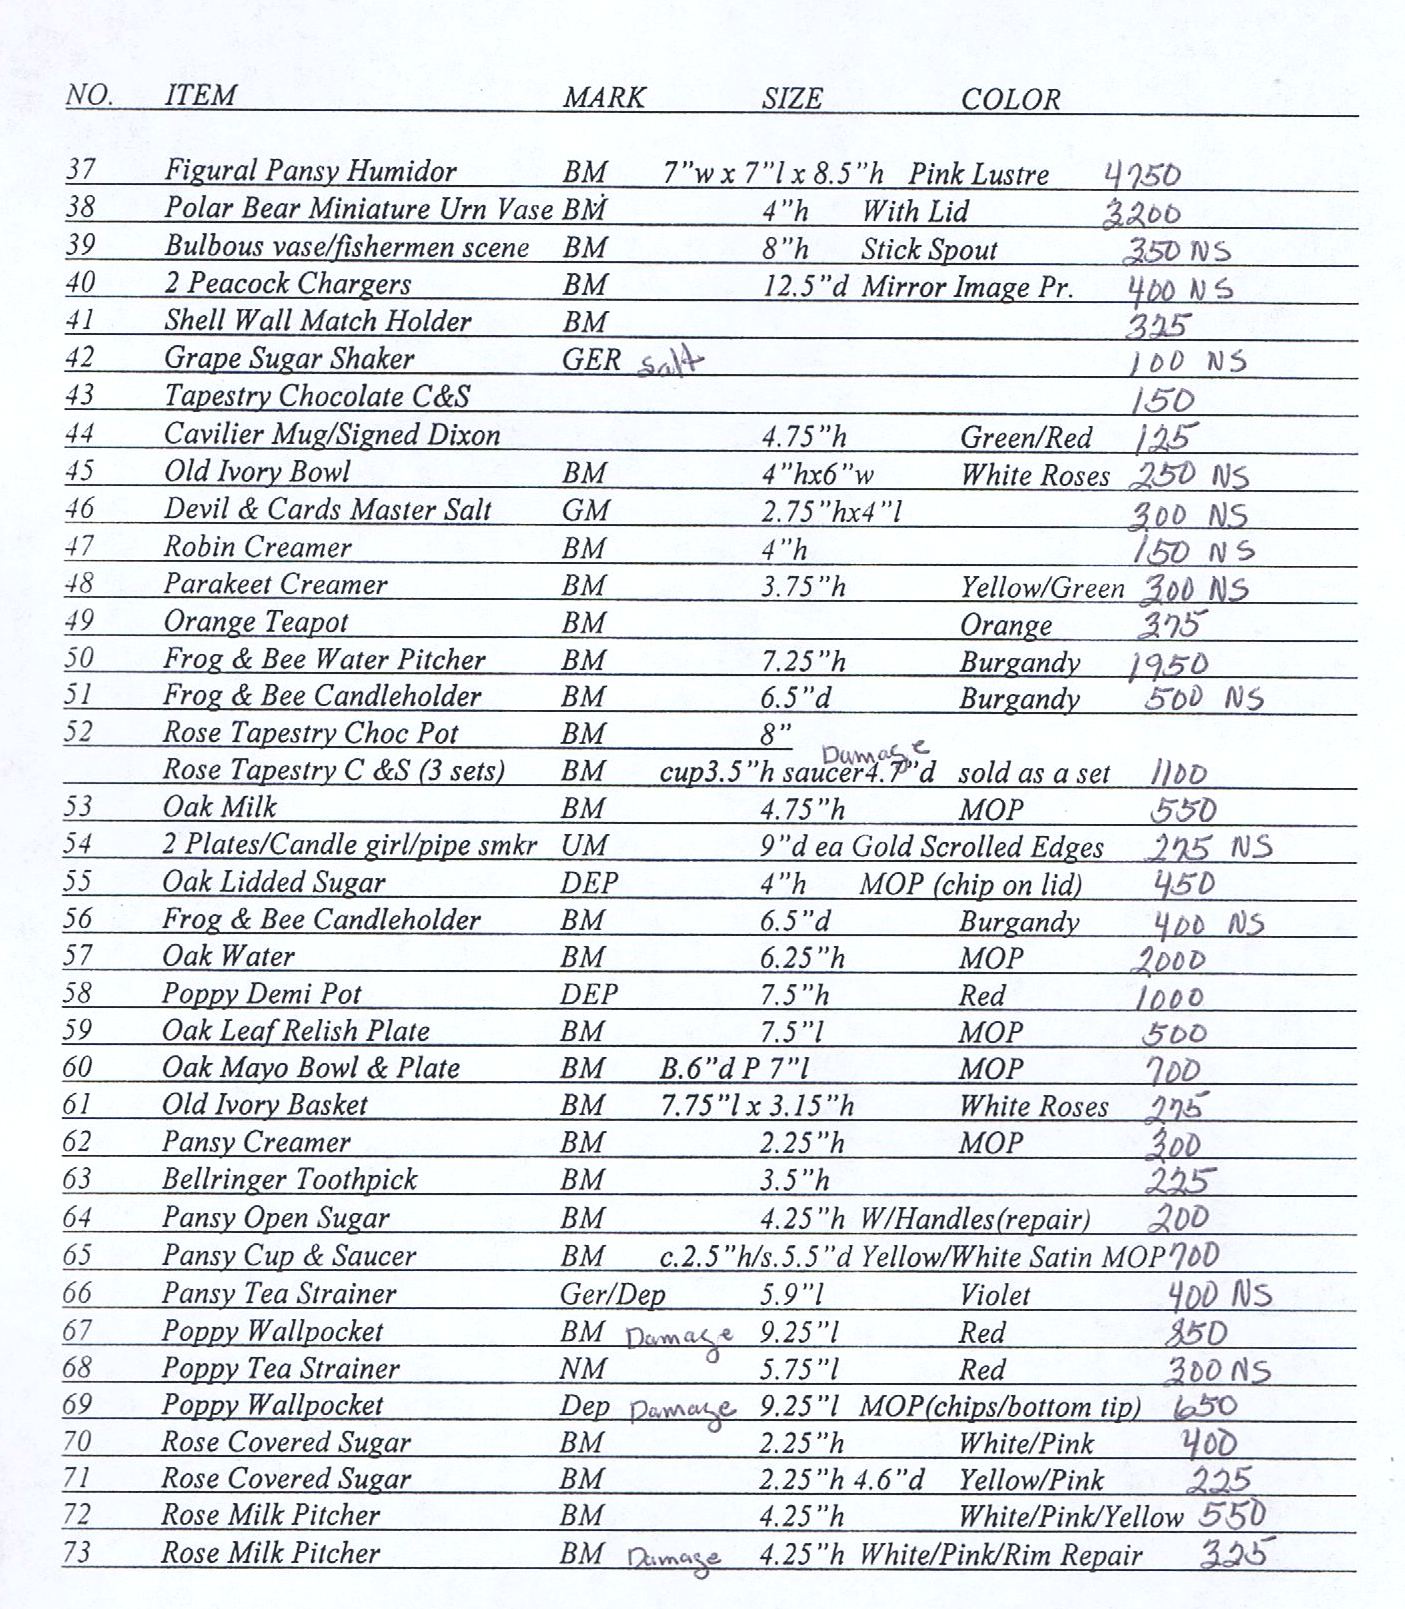 NO. ITEM MARK SIZE COLOR
37 Figural Pansy Humidor BM 7"w x 7"l x 8.5"h Pink Lustre 4750
38 Polar Bear Miniature Urn Vase BM 4"h With Lid 3200
39 Bulbous vase/fishermen scene BM 8"h Stick Spout 350 NS
40 2 Peacock Chargers BM 12.5"d Mirror Image Pr. 400 NS
41 Shell Wall Match Holder BM 325
42 Grape Sugar Shaker GER Salt 100 NS
43 Tapestry Chocolate C&S 150
44 Cavilier Mug/Signed Dixon 4.75"h Green/Red 125
45 Old Ivory Bowl BM 4"hx6"w White Roses 250 NS
46 Devil & Cards Master Salt GM 2.75"hx4"l 300 NS
47 Robin Creamer BM 4"h 150 NS
48 Parakeet Creamer BM 3.75"h Yellow/Green 300 NS
49 Orange Teapot BM Orange 375
50 Frog & Bee Water Pitcher BM 7.25"h Burgandy 1950
51 Frog & Bee Candleholder BM 6.5"d Burgandy 500 NS
52 Rose Tapestry Choc Pot BM 8"
Damage
Rose Tapestry C &S (3 sets) BM cup3.5"h saucer4.7"d sold as a set 1100
53 Oak Milk BM 4.75"h MOP 550
54 2 Plates/Candle girl/pipe smkr UM 9"d ea Gold Scrolled Edges 275 NS
55 Oak Lidded Sugar DEP 4"h MOP (chip on lid) 450
56 Frog & Bee Candleholder BM 6.5"d Burgandy 400 NS
57 Oak Water BM 6.25"h MOP 2000
58 Poppy Demi Pot DEP 7.5"h Red 1000
59 Oak Leaf Relish Plate BM 7.5"l MOP 500
60 Oak Mayo Bowl & Plate BM B.6"d P 7"l MOP 700
61 Old Ivory Basket BM 7.75"l x 3.15"h White Roses 275
62 Pansy Creamer BM 2.25"h MOP 300
63 Bellringer Toothpick BM 3.5"h 225
64 Pansy Open Sugar BM 4.25"h W/Handles(repair) 200
65 Pansy Cup & Saucer BM c.2.5"h/s.5.5"d Yellow/White Satin MOP 700
66 Pansy Tea Strainer Ger/Dep 5.9"l Violet 400 NS
67 Poppy Wallpocket BM Damage 9.25"l Red 850
68 Poppy Tea Strainer NM 5.75"l Red 300 NS
69 Poppy Wallpocket Dep Damage 9.25"l MOP(chips/bottom tip) 650
70 Rose Covered Sugar BM 2.25"h White/Pink 400
71 Rose Covered Sugar BM 2.25"h 4.6"d Yellow/Pink 225
72 Rose Milk Pitcher BM 4.25"h White/Pink/Yellow 550
73 Rose Milk Pitcher BM Damage 4.25"h White/Pink/Rim Repair 325